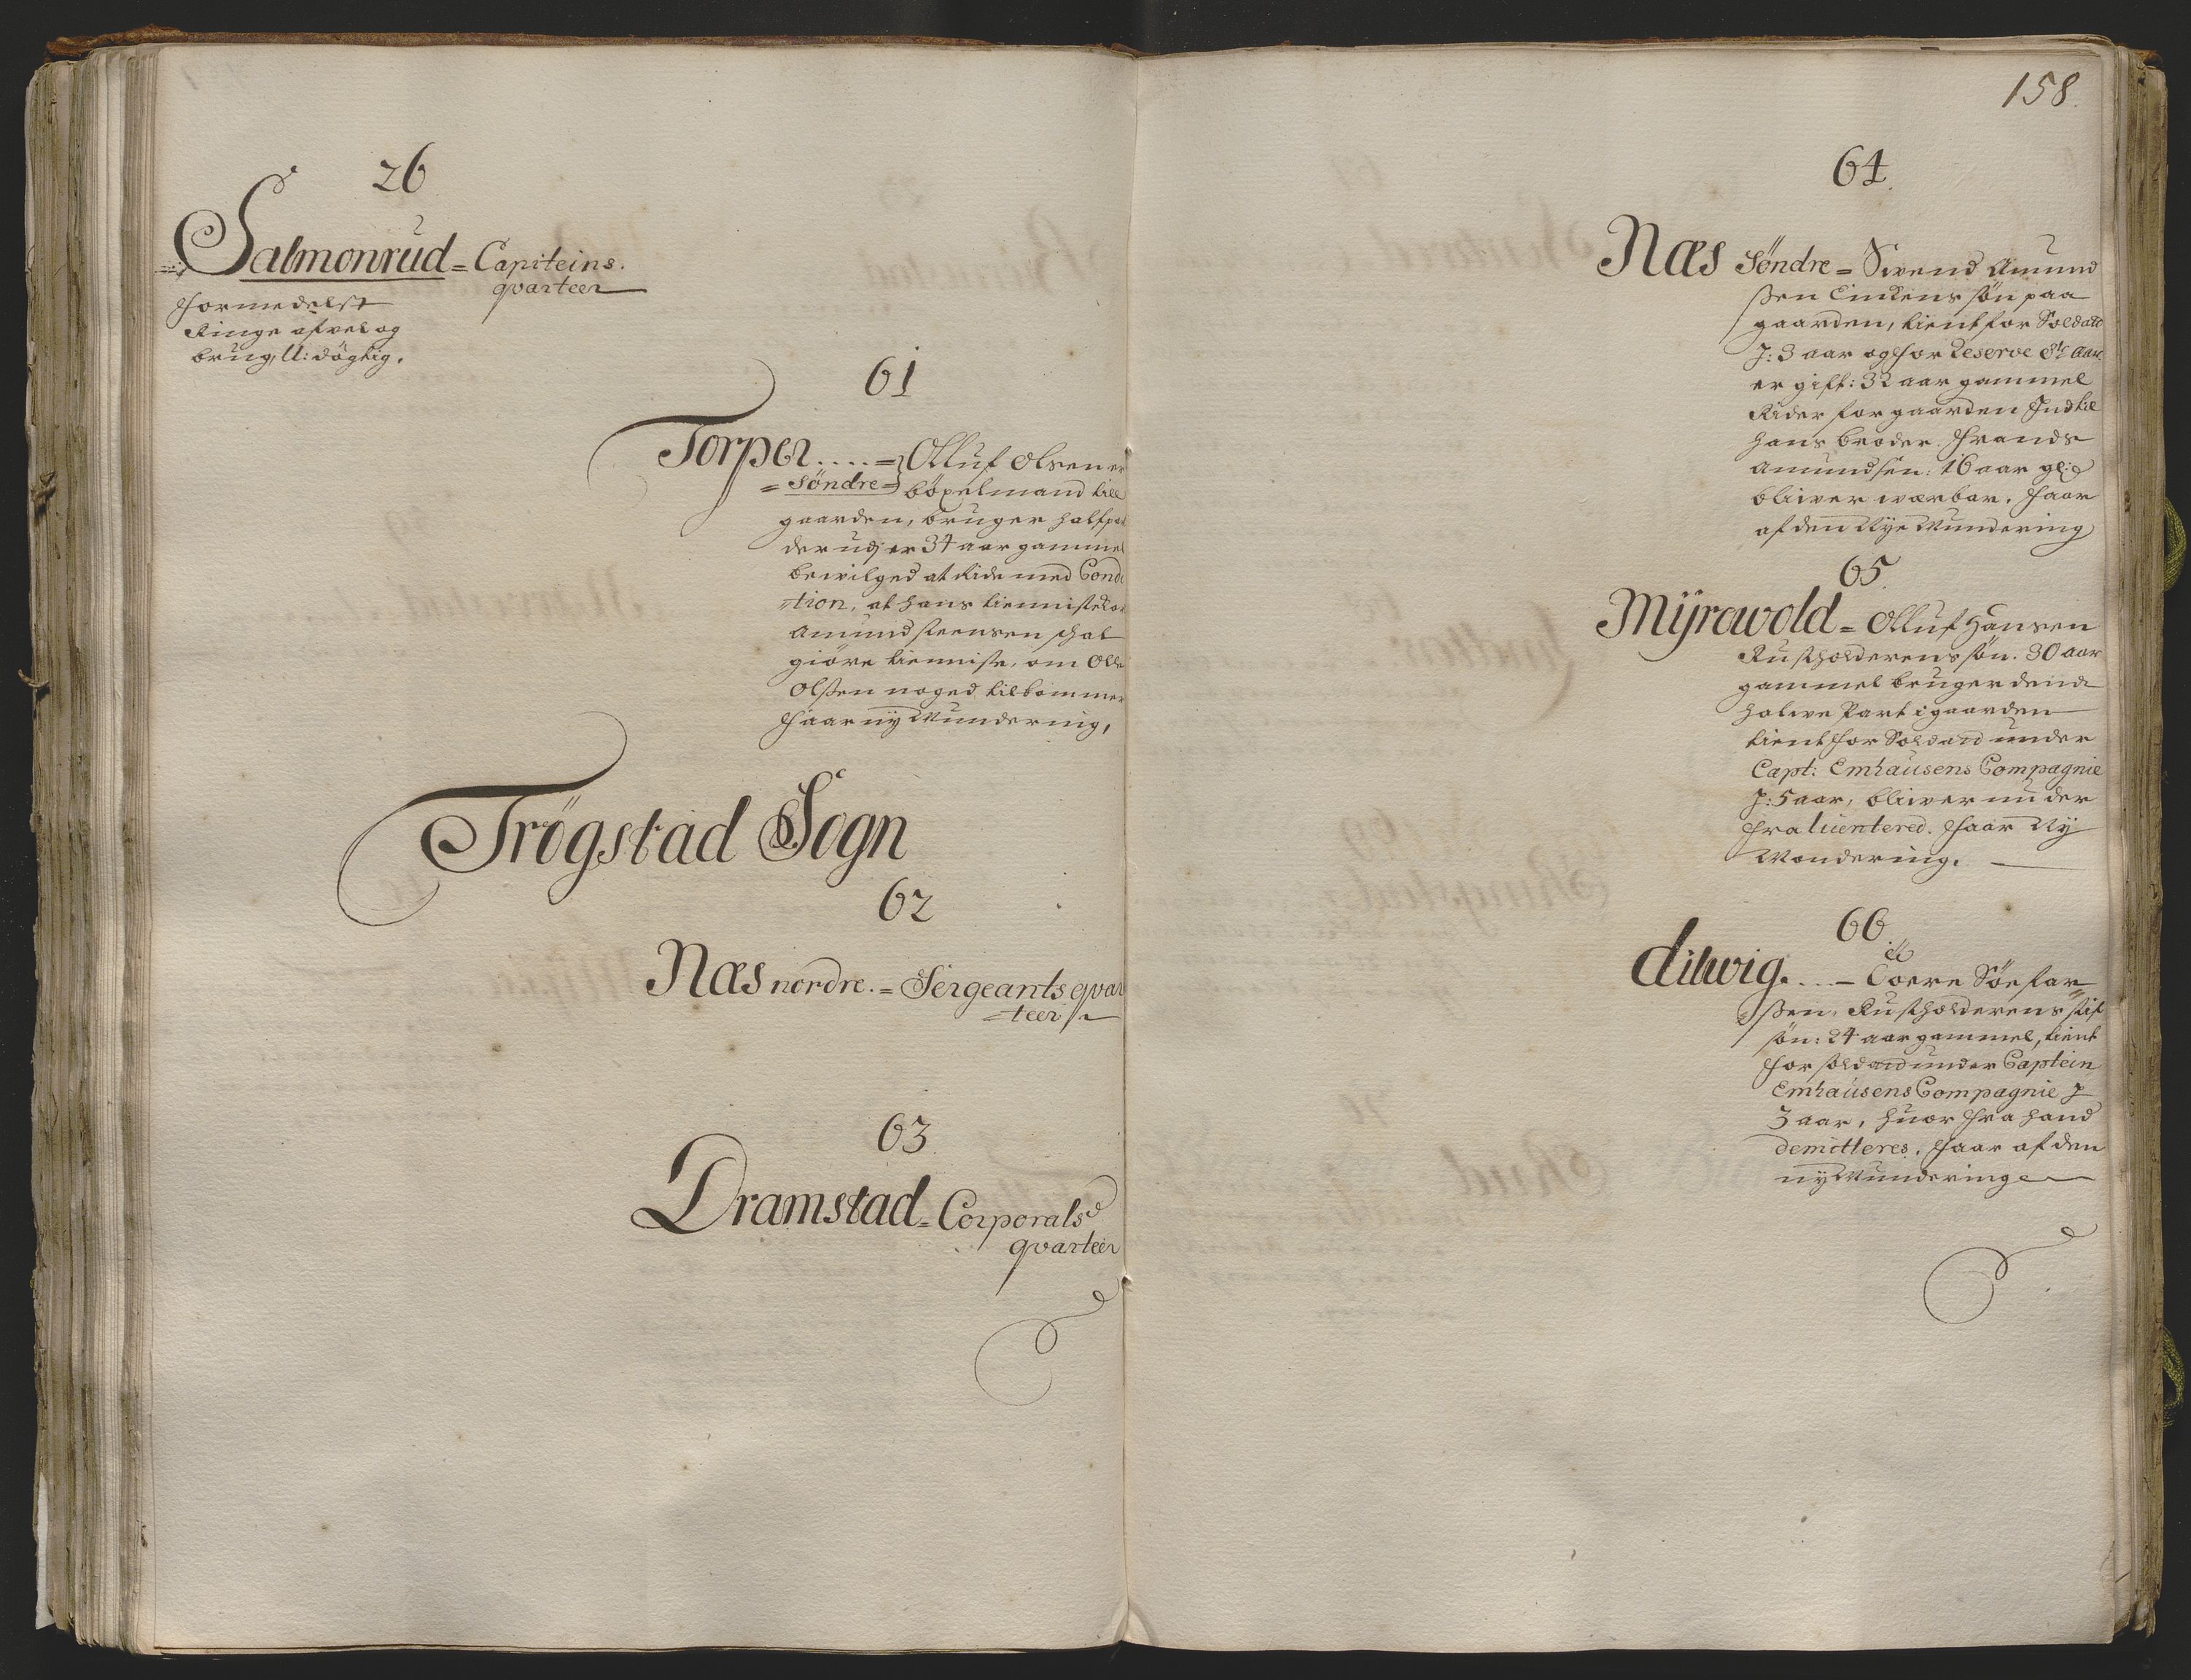 26
Salmonrud = Capiteins.
qvarteer
formedelst
Ringe afvel og
brug, U: dögtig.
61
Torper .... = Olluf Olsen er
= Söndre = böxelmand till
gaarden, bruger half part
der udj er 34 aar gammel
bewilged at Ride med Condi
=tion, at hans tienneste
Amund Steensen schal
giöre tienniste, om Olle
Olssen noged tilkommer
faar nÿ Mundering,
Trögstad Sogn
62
Næs nordre. = Sergeants qvar
=teer
63
Dramstad = Corporals
qvarteer
158.
64.
Næs Söndre = Swend Amund
ssen Enkens sön paa
gaarden, tient for Soldatt
J: 3 aar og for Reserve aar
er gift: 32 aar gammel
Rider for gaarden Indtil
hans broder Frands
Amundsen: 16 aar gl:
bliwer werbar. faar
af den Nÿe Mundering
65.
Mÿrewold = Olluf Hansen
Rustholderens sön. 30 aar
gammel bruger dend
halwe Part i gaarden
tient for Soldat under
Capt: Emhausens Compagnie
J: 5 aar, bliwer nu der
fra liientered. faar Nÿ
Mondering.
66
dilwig ... = Coere Söefar=
ssen, Rustholderens stif
sön: 24 aar gammel, tient
for soldat under Captein
Emhausens Compagnie J
3 aar, huor fra hand
demitteres, faar af den
nÿ Mundering